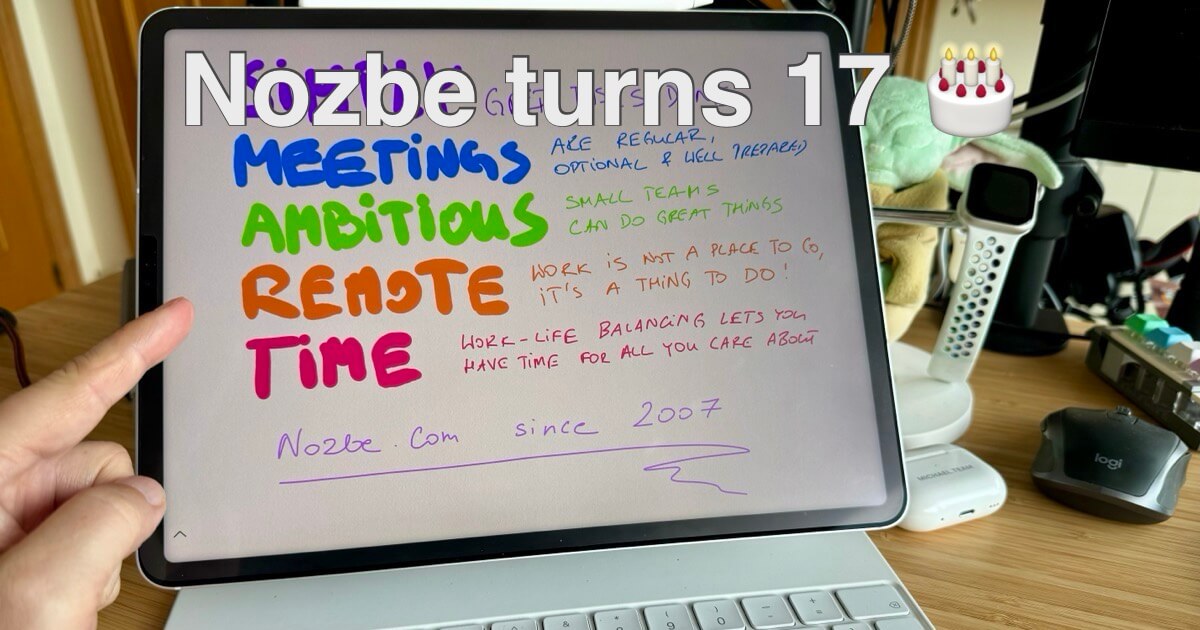 Nozbe turns 17
MEETINGS
ARE REGULAR,
OPTIONAL & WELL PREPARED
AMBITIOUS
SMALL TEAMS
CAN DO GREAT THINGS
REMOTE
WORK IS NOT A PLACE TO GO,
IT'S A THING TO DO!
TIME
WORK-LIFE BALANCING LETS YOU
HAVE TIME FOR ALL YOU CARE ABOUT
Nozbe.com since 2007
MICHAEL TEAM
logi